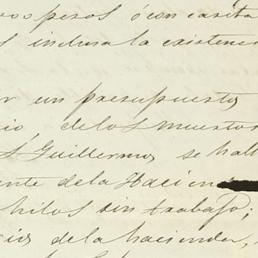 pesos ó con casita
s inclusa la existenc
un presupuesto
io, de los muertos
Guillermo se hall
ente de la Hacien
hilos sin trabajo;
cios de la hacienda,